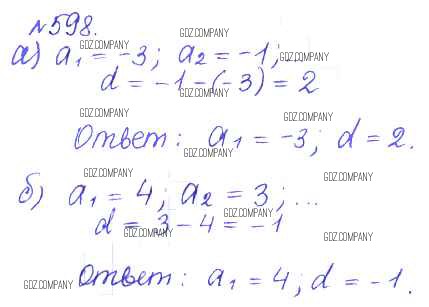 №598.
а) a₁ = -3; a₂ = -1;
d = -1-(-3) = 2
Ответ: a₁ = -3; d = 2.
б) a₁ = 4; a₂ = 3; ...
d = 3-4 = -1
Ответ: a₁ = 4; d = -1.
GDZ.COMPANY
GDZ.COMPANY
GDZ.COMPANY
GDZ.COMPANY
GDZ.COMPANY
GDZ.COMPANY
GDZ.COMPANY
GDZ.COMPANY
GDZ.COMPANY
GDZ.COMPANY
GDZ.COMPANY
GDZ.COMPANY
GDZ.COMPANY
GDZ.COMPANY